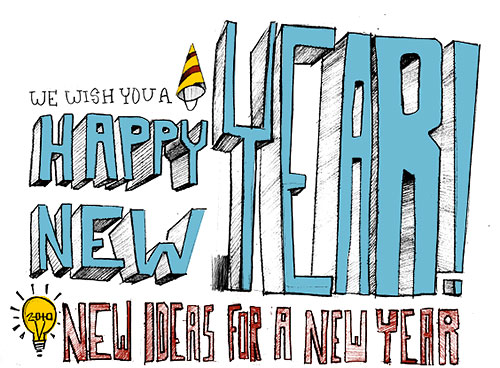 WE WISH YOU A
HAPPY
NEW YEAR!
2010
NEW IDEAS FOR A NEW YEAR